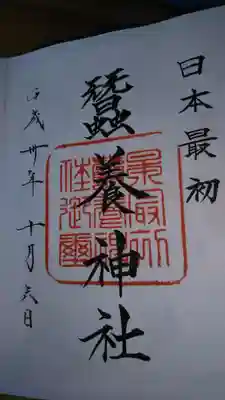 日本最初
蠶養神社
平成卅年十月六日